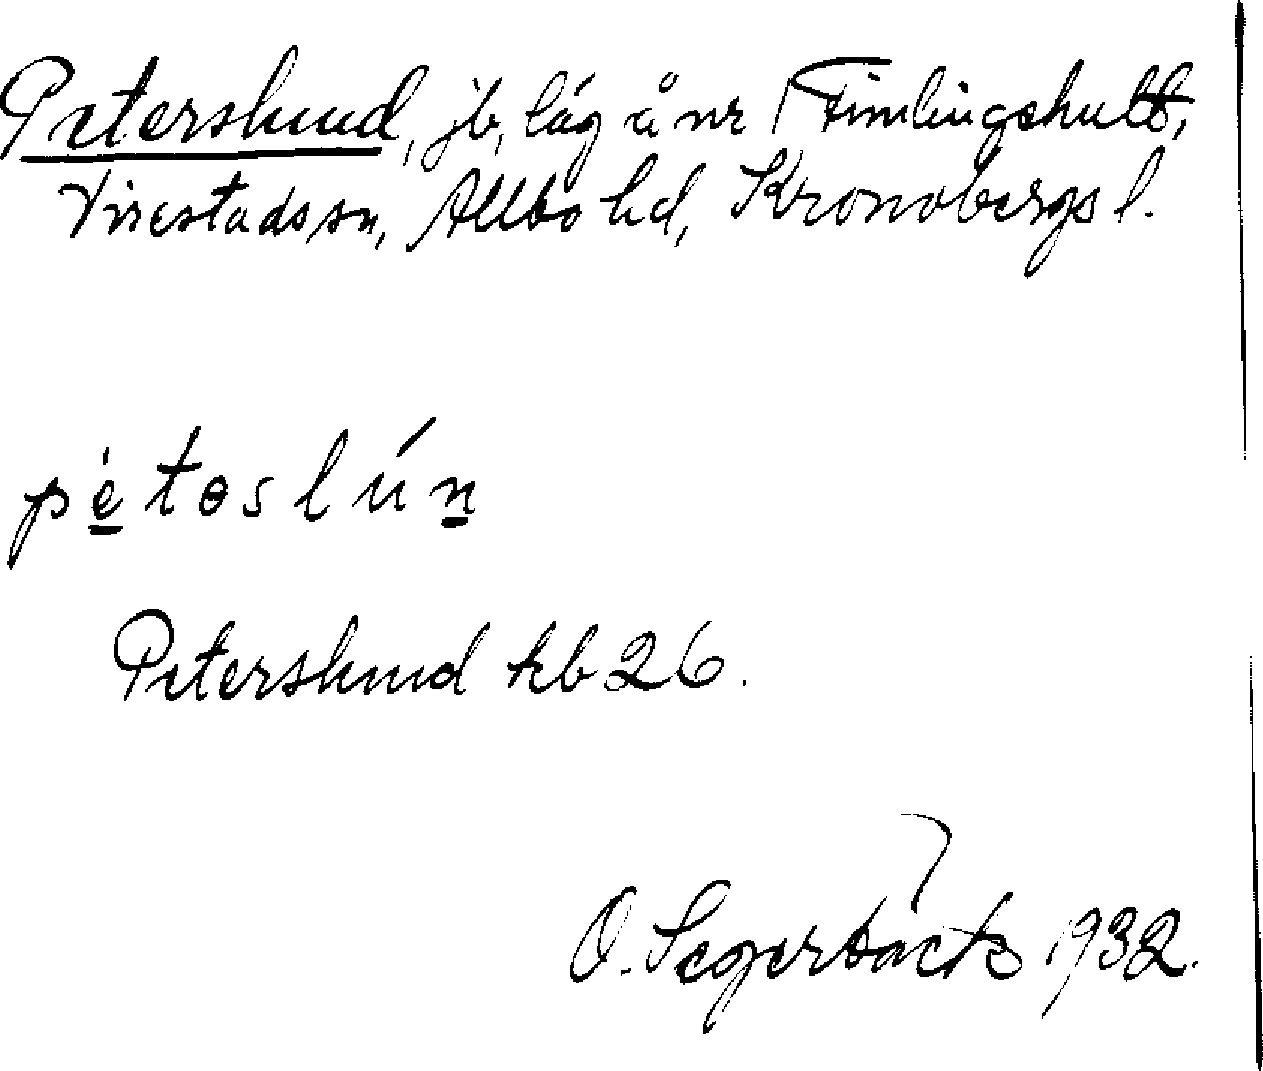 Peterslund, jb, låg å nr 1 Fimlingshult,
Virestads sn, Allbo hd, Kronobergs l.
pètɵslún
Peterslund kb 26.
O. Segerbäck 1932.